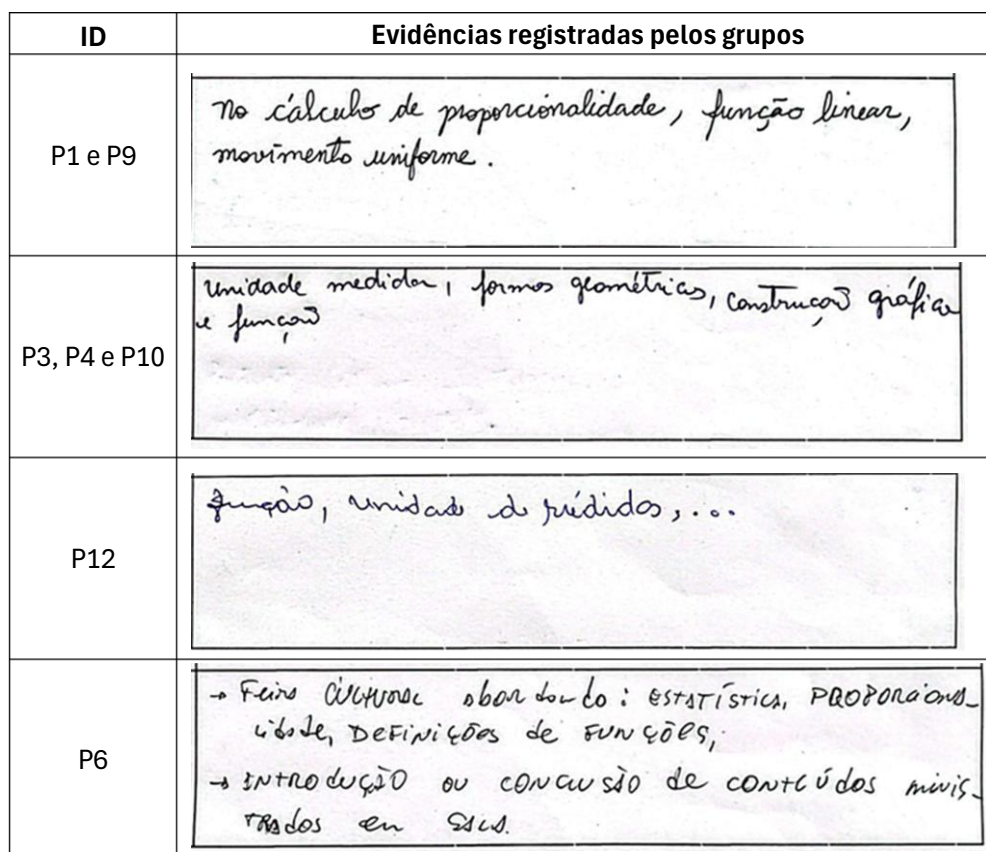 ID Evidências registradas pelos grupos
P1 e P9
No cálculo de proporcionalidade, função linear,
movimento uniforme.
P3, P4 e P10
Unidade medidas, formas geométricas, construção gráfica
e função
P12
função, unidade de médidas, ...
P6
→ Feira CULTURAL abordando: ESTATÍSTICA, PROPORCIONA_
lidade, DEFINIÇÕES de FUNÇÕES,
→ INTRODUÇÃO OU CONCLUSÃO de CONTEÚDOS minis_
TRADOS em SALA.